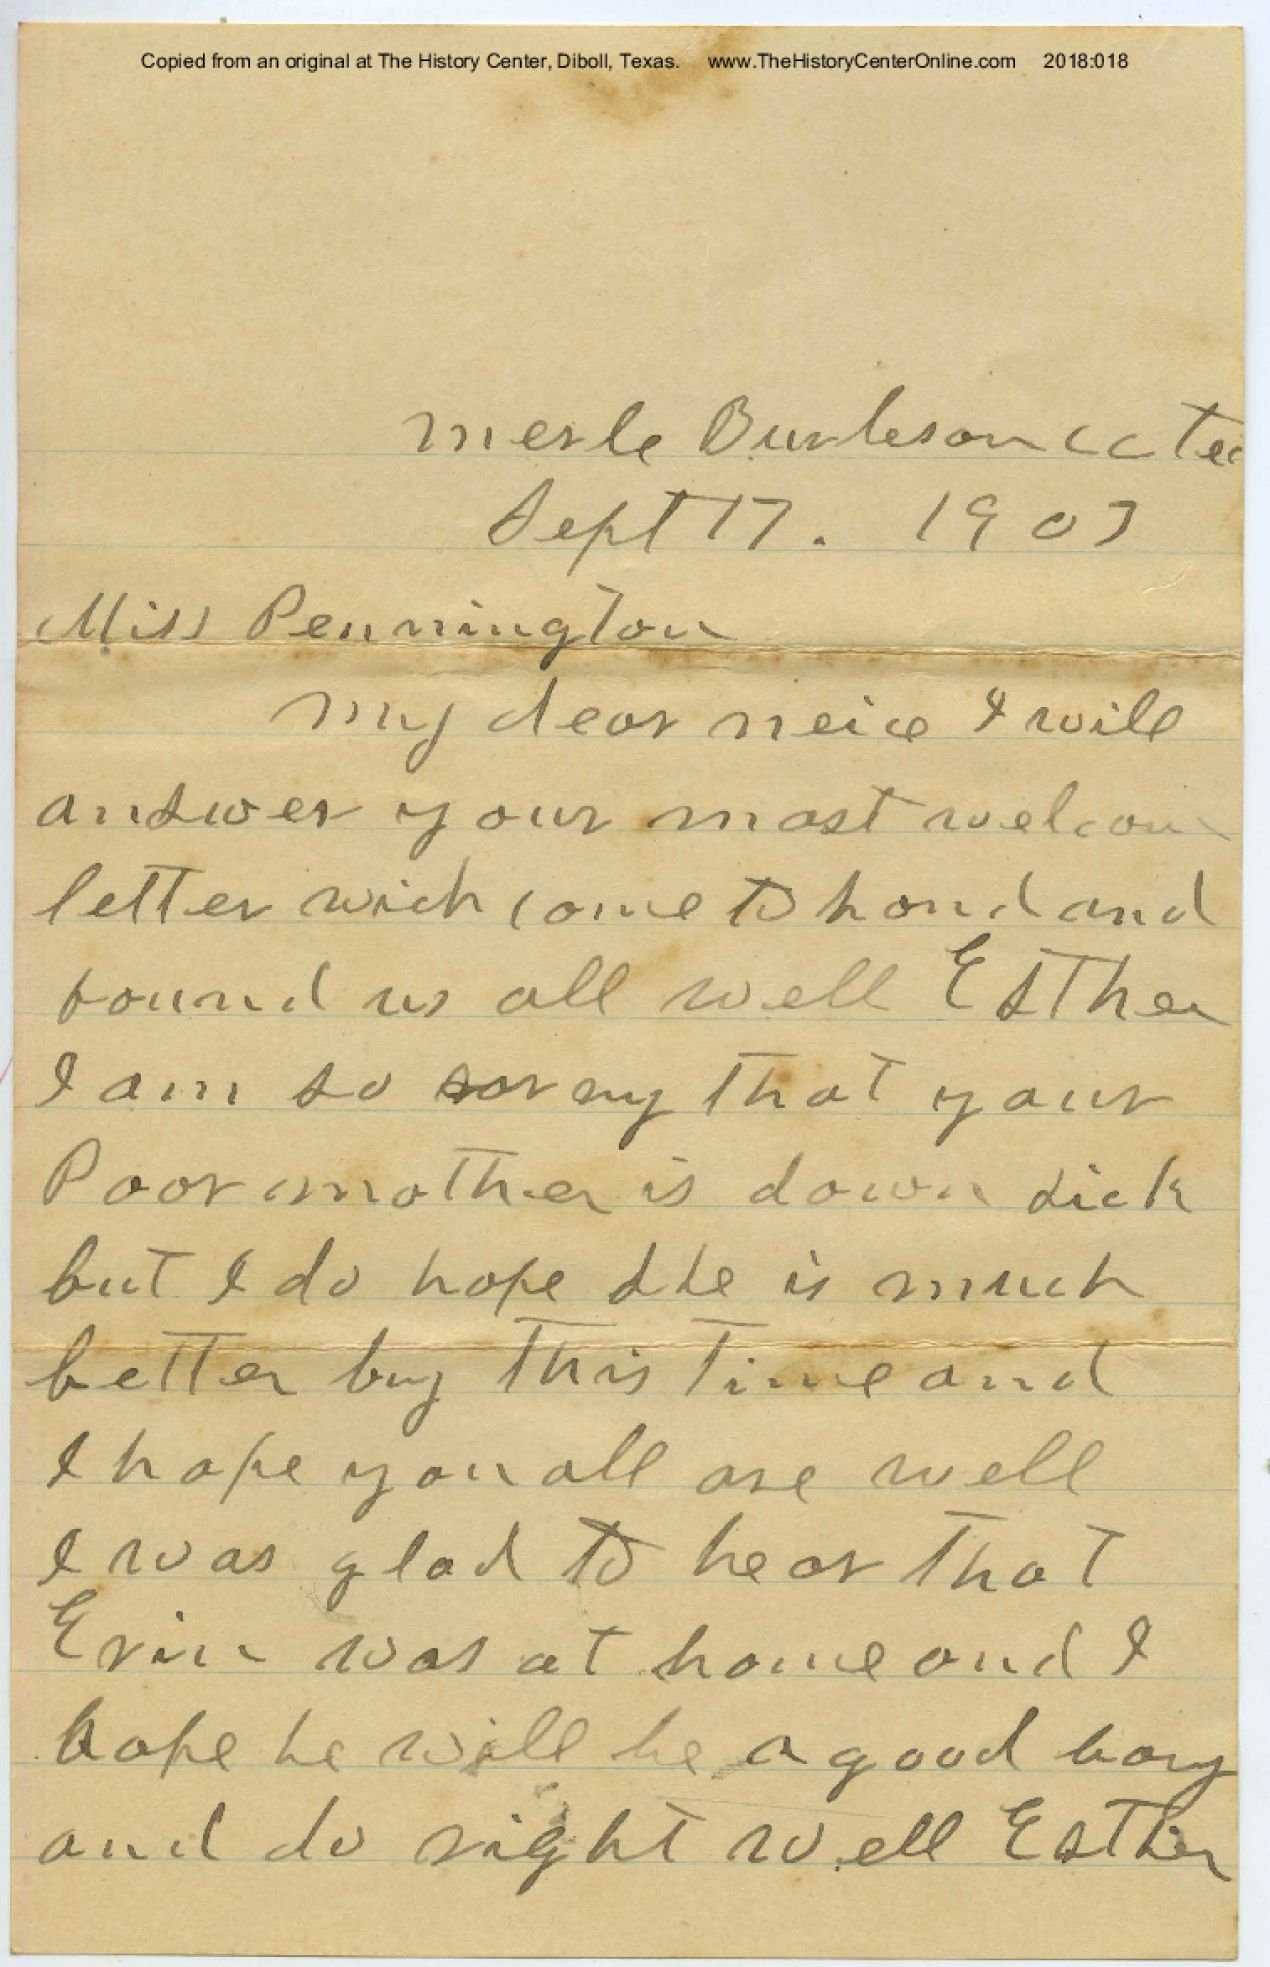 Copied from an original at The History Center, Diboll, Texas. www.TheHistoryCenterOnline.com 2018:018
Merle Burleson cc Tex
Sept 17. 1907
Miss Pennington
My dear neice I will
answer your most welcom
letter wich come to hand and
found us all well Esther
I am so sorry that your
Poor mother is down sick
but I do hope she is much
better buy this Time and
I hope you all are well
I was glad to hear that
was at home and I
hope he will be a good boy
and do right well Esther